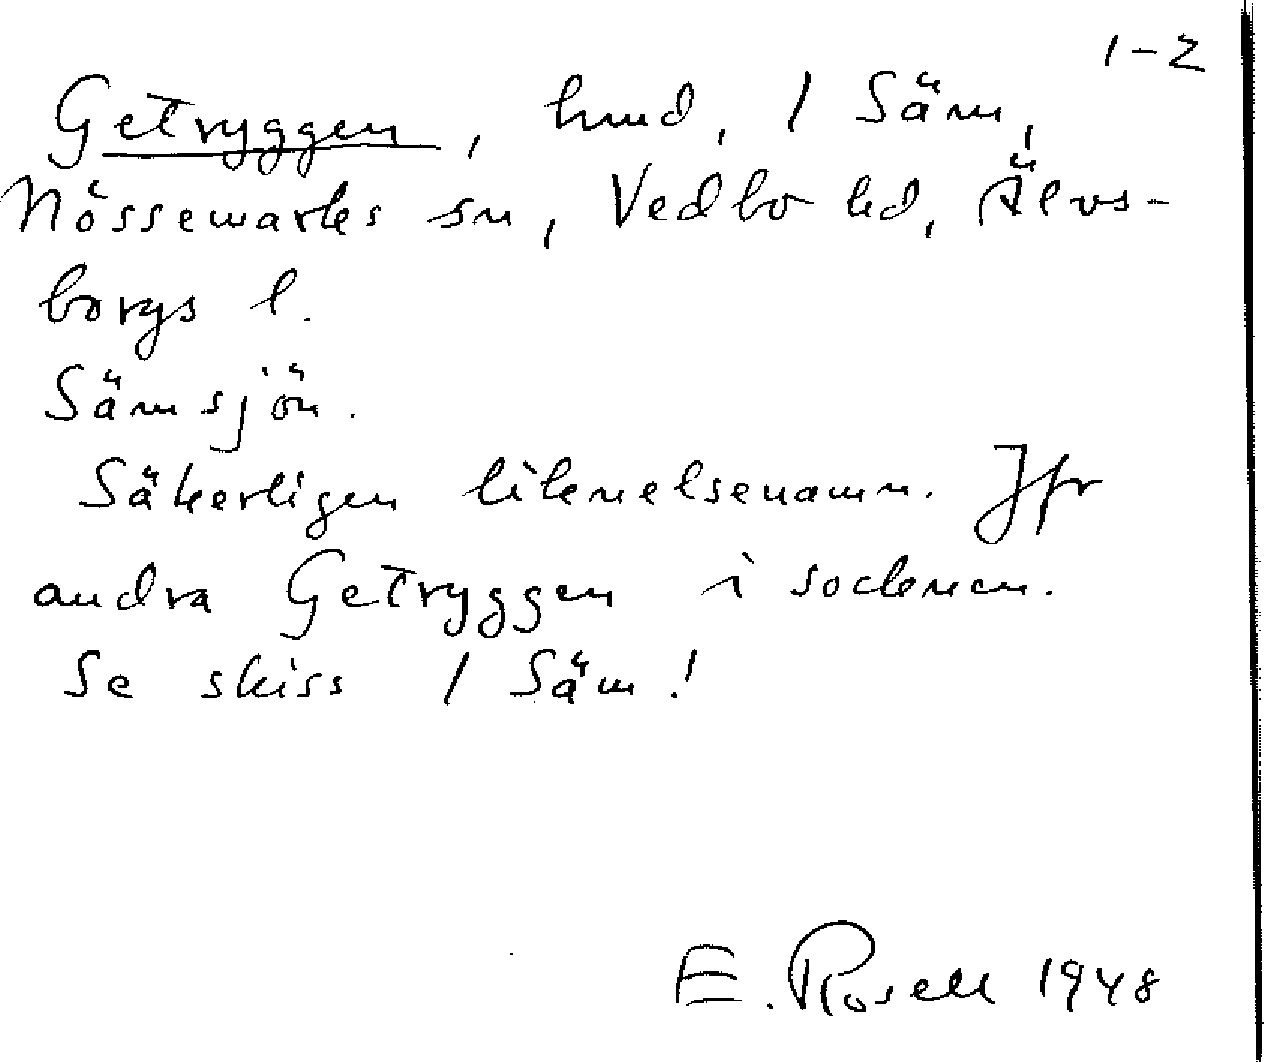 1-2
Getryggen, hmd, / Säm,
Nössemarks sn, Vedbo hd, Älvs-
borgs l.
Sämsjön.
Säkerligen liknelsenamn. Jfr
andra Getryggen i socknen.
Se skiss / Säm!
E. Rosell 1948